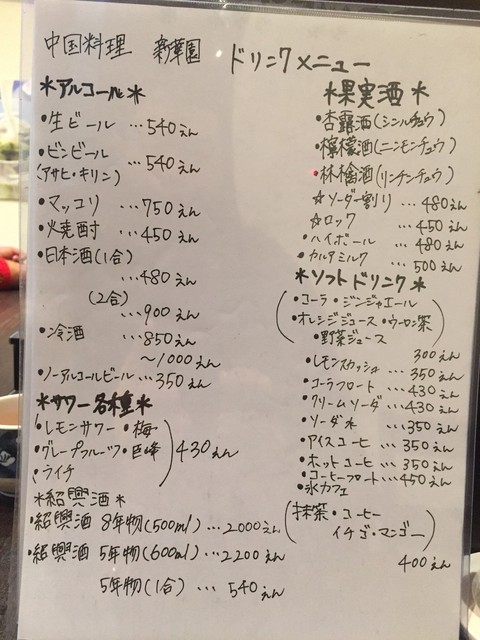 中国料理 新華園 ドリンクメニュー
*アルコール*
・生ビール …540えん
・ビンビール …540えん
(アサヒ・キリン)
・マッコリ …750えん
・焼酎 …450えん
・日本酒(1合)
…480えん
(2合)
…900えん
・冷酒 …850えん
～1000えん
・ノーアルコールビール…350えん
*サワー各種*
・レモンサワー・梅
・グレープフルーツ・巨峰
・ライチ
430えん
*紹興酒*
・紹興酒 8年物(500ml)…2000えん
・紹興酒 5年物(600ml)…2200えん
5年物(1合) … 540えん
*果実酒*
・杏露酒(シンルチュウ)
・檸檬酒(ニンモンチュウ)
・林檎酒(リンチンチュウ)
☆ソーダー割り …480えん
☆ロック …450えん
・ハイボール …480えん
・カルアミルク …500えん
*ソフトドリンク*
・コーラ・ジンジャエール
・オレンジジュース・ウーロン茶
・野菜ジュース
300えん
・レモンスカッシュ …350えん
・コーラフロート …430えん
・クリームソーダ …430えん
・ソーダ水 …350えん
・アイスコーヒ …350えん
・ホットコーヒ …350えん
・コーヒーフロート…450えん
・氷カフェ
(抹茶・コーヒー
イチゴ・マンゴー)
400えん